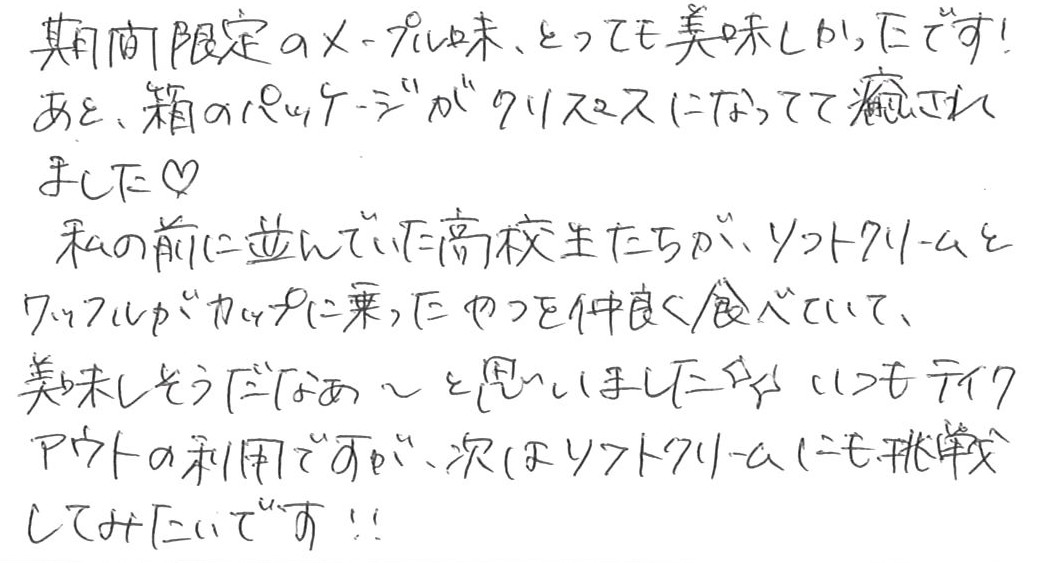 期間限定のメープル味、とっても美味しかったです!
あと、箱のパッケージがクリスマスになってて癒され
ました♡
私の前に並んでいた高校生たちが、ソフトクリームと
ワッフルがカップに乗ったやつを仲良く食べていて、
美味しそうだなあ〜と思いました☆☆ いつもテイク
アウトの利用ですが、次はソフトクリームにも挑戦
してみたいです!!